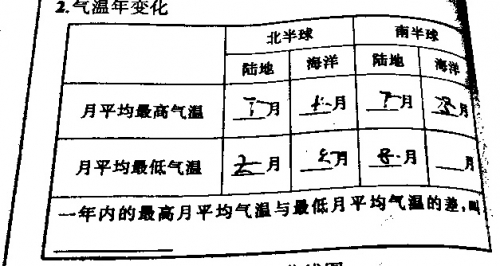 2.气温年变化
北半球 南半球
陆地 海洋 陆地 海洋
月平均最高气温 7月 月 7月 月
月平均最低气温 2月 月 8月 月
一年内的最高月平均气温与最低月平均气温的差,叫